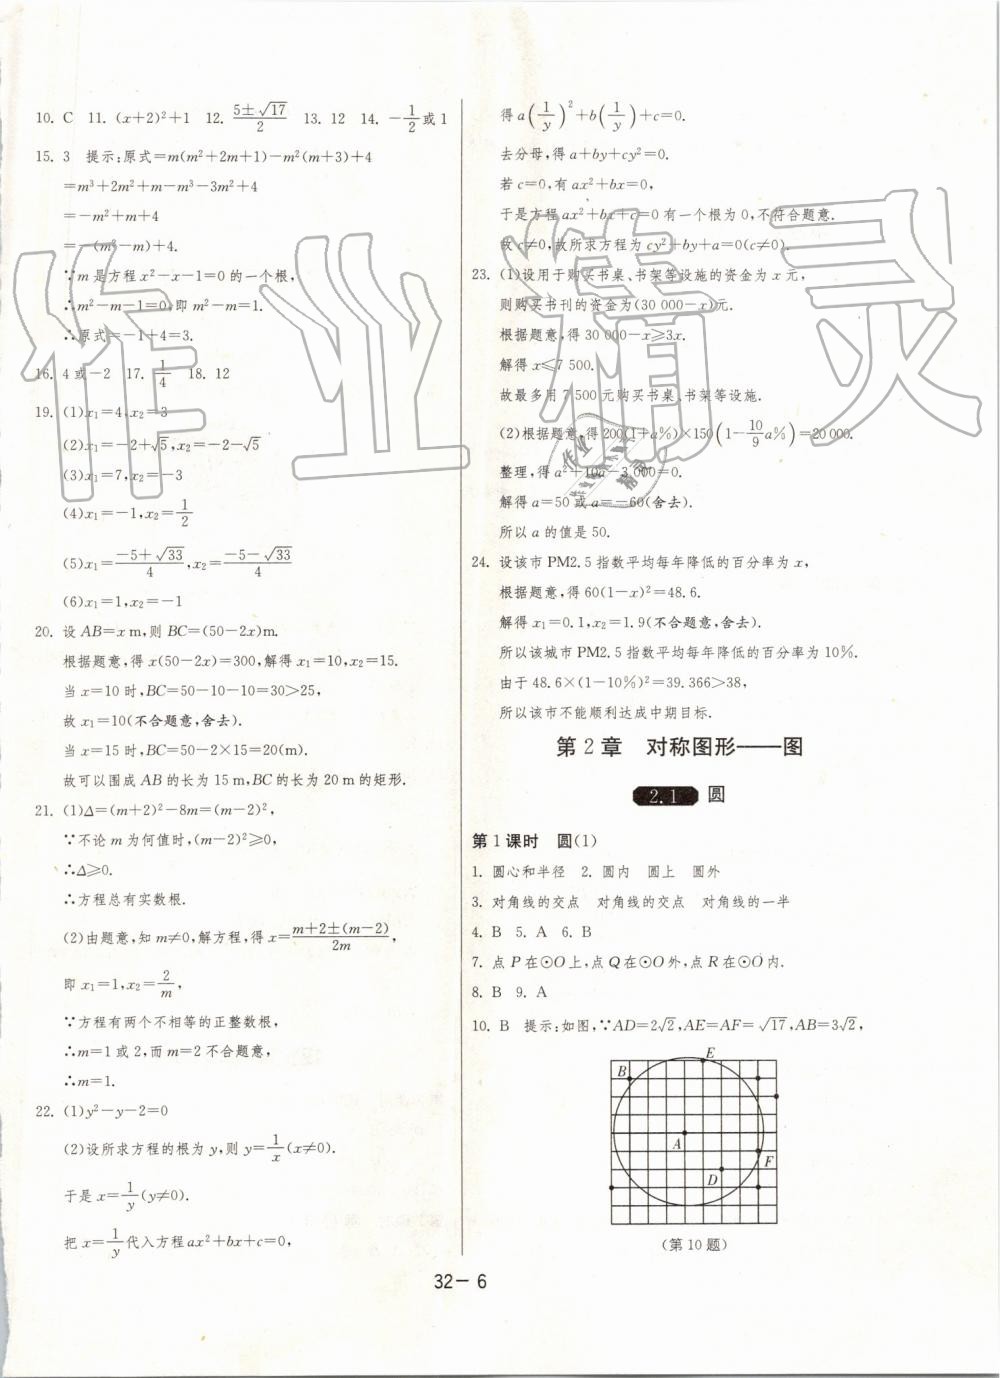 10. C 11. (x+2)²+1 12. (5±√17)/2 13. 12 14. -1/2或1
15. 3 提示:原式=m(m²+2m+1)-m²(m+3)+4
=m³+2m²+m-m³-3m²+4
=-m²+m+4
=-(m²-m)+4.
∵m是方程x²-x-1=0的一个根,
∴m²-m-1=0,即m²-m=1.
∴原式=-1+4=3.
16. 4或-2 17. 1/4 18. 12
19. (1)x₁=4,x₂=3
(2)x₁=-2+√5,x₂=-2-√5
(3)x₁=7,x₂=-3
(4)x₁=-1,x₂=1/2
(5)x₁=(-5+√33)/4,x₂=(-5-√33)/4
(6)x₁=1,x₂=-1
20. 设AB=x m,则BC=(50-2x)m.
根据题意,得x(50-2x)=300,解得x₁=10,x₂=15.
当x=10时,BC=50-10-10=30>25,
故x₁=10(不合题意,舍去).
当x=15时,BC=50-2×15=20(m).
故可以围成AB的长为15 m,BC的长为20 m的矩形.
21. (1)Δ=(m+2)²-8m=(m-2)²,
∵不论m为何值时,(m-2)²≥0,
∴Δ≥0.
∴方程总有实数根.
(2)由题意,知m≠0,解方程,得x=(m+2±(m-2))/2m,
即x₁=1,x₂=2/m,
∵方程有两个不相等的正整数根,
∴m=1或2,而m=2不合题意,
∴m=1.
22. (1)y²-y-2=0
(2)设所求方程的根为y,则y=1/x(x≠0).
于是x=1/y(y≠0).
把x=1/y代入方程ax²+bx+c=0,
得a(1/y)²+b(1/y)+c=0.
去分母,得a+by+cy²=0.
若c=0,有ax²+bx=0,
于是方程ax²+bx+c=0有一个根为0,不符合题意.
故c≠0,故所求方程为cy²+by+a=0(c≠0).
23. (1)设用于购买书桌、书架等设施的资金为x元,
则购买书刊的资金为(30 000-x)元.
根据题意,得30 000-x≥3x.
解得x≤7 500.
故最多用7 500元购买书桌、书架等设施.
(2)根据题意,得200(1+a%)×150(1-10/9a%)=20 000.
整理,得a²+10a-3 000=0.
解得a=50或a=-60(舍去).
所以a的值是50.
24. 设该市PM2.5指数平均每年降低的百分率为x,
根据题意,得60(1-x)²=48.6.
解得x₁=0.1,x₂=1.9(不合题意,舍去).
所以该城市PM2.5指数平均每年降低的百分率为10%.
由于48.6×(1-10%)²=39.366>38,
所以该市不能顺利达成中期目标.
第2章 对称图形——图
2.1 圆
第1课时 圆(1)
1. 圆心和半径 2. 圆内 圆上 圆外
3. 对角线的交点 对角线的交点 对角线的一半
4. B 5. A 6. B
7. 点P在⊙O上,点Q在⊙O外,点R在⊙O内.
8. B 9. A
10. B 提示:如图,∵AD=2√2,AE=AF=√17,AB=3√2,
E
B
A
F
D
(第10题)
32-6
作业精灵
作业
精灵